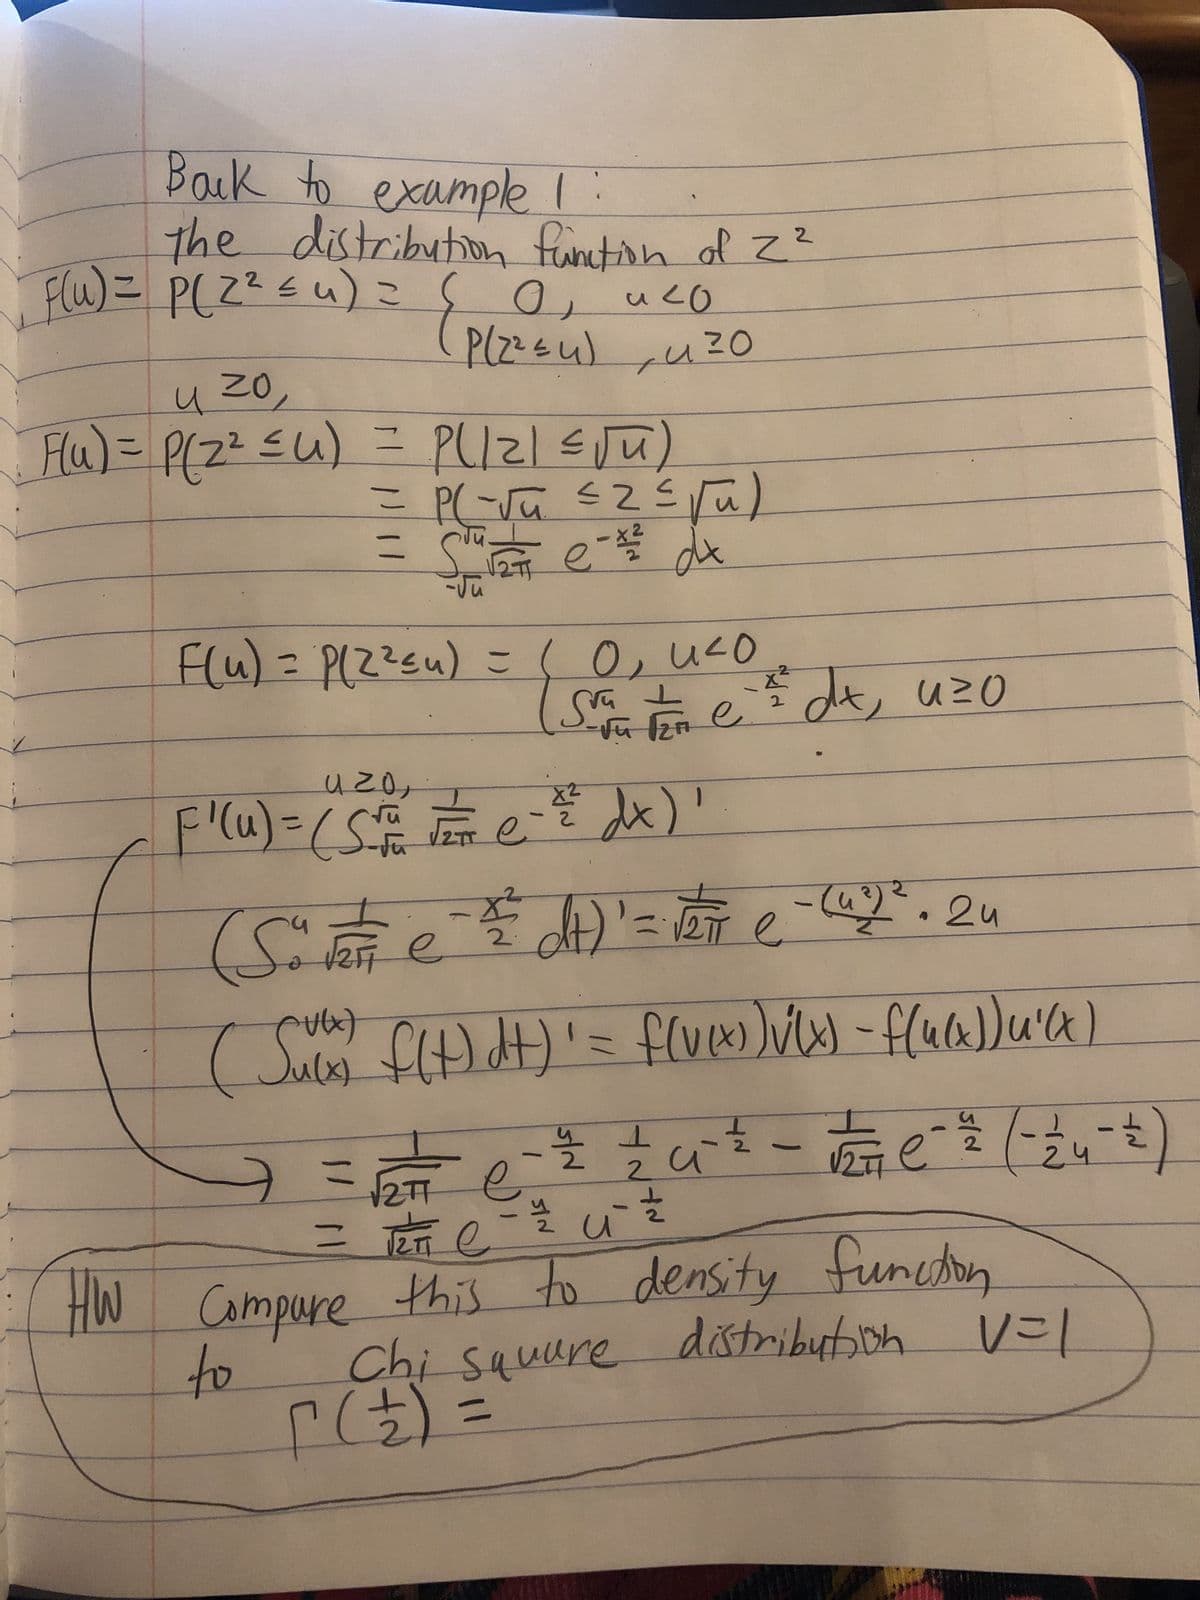 Back to example 1:
The distribution function of Z²
F(u) = P(Z² ≤ u) = { 0, u<0
P(Z² ≤ u), u≥0
u ≥0,
F(u) = P(Z² ≤ u) = P(|Z| ≤ √u)
= P(-√u ≤ Z ≤ √u)
= ∫_{-√u}^{√u} 1/√2π e^{-x²/2} dx
F(u) = P(Z² ≤ u) = { 0, u<0
∫_{-√u}^{√u} 1/√2π e^{-x²/2} dx, u≥0
u≥0,
F'(u) = (∫_{-√u}^{√u} 1/√2π e^{-x²/2} dx)'
(∫_0^u 1/√2π e^{-x²/2} dt)' = 1/√2π e^{-(u²)²/2} · 2u
(∫_{u(x)}^{v(x)} f(t) dt)' = f(v(x))v'(x) - f(u(x))u'(x)
→ = 1/√2π e^{-u/2} 1/2 u^{-1/2} - 1/√2π e^{-u/2} (-1/2 u^{-1/2})
= 1/√2π e^{-u/2} u^{-1/2}
HW Compare this to density function
to Chi square distribution V=1
Γ(1/2) =